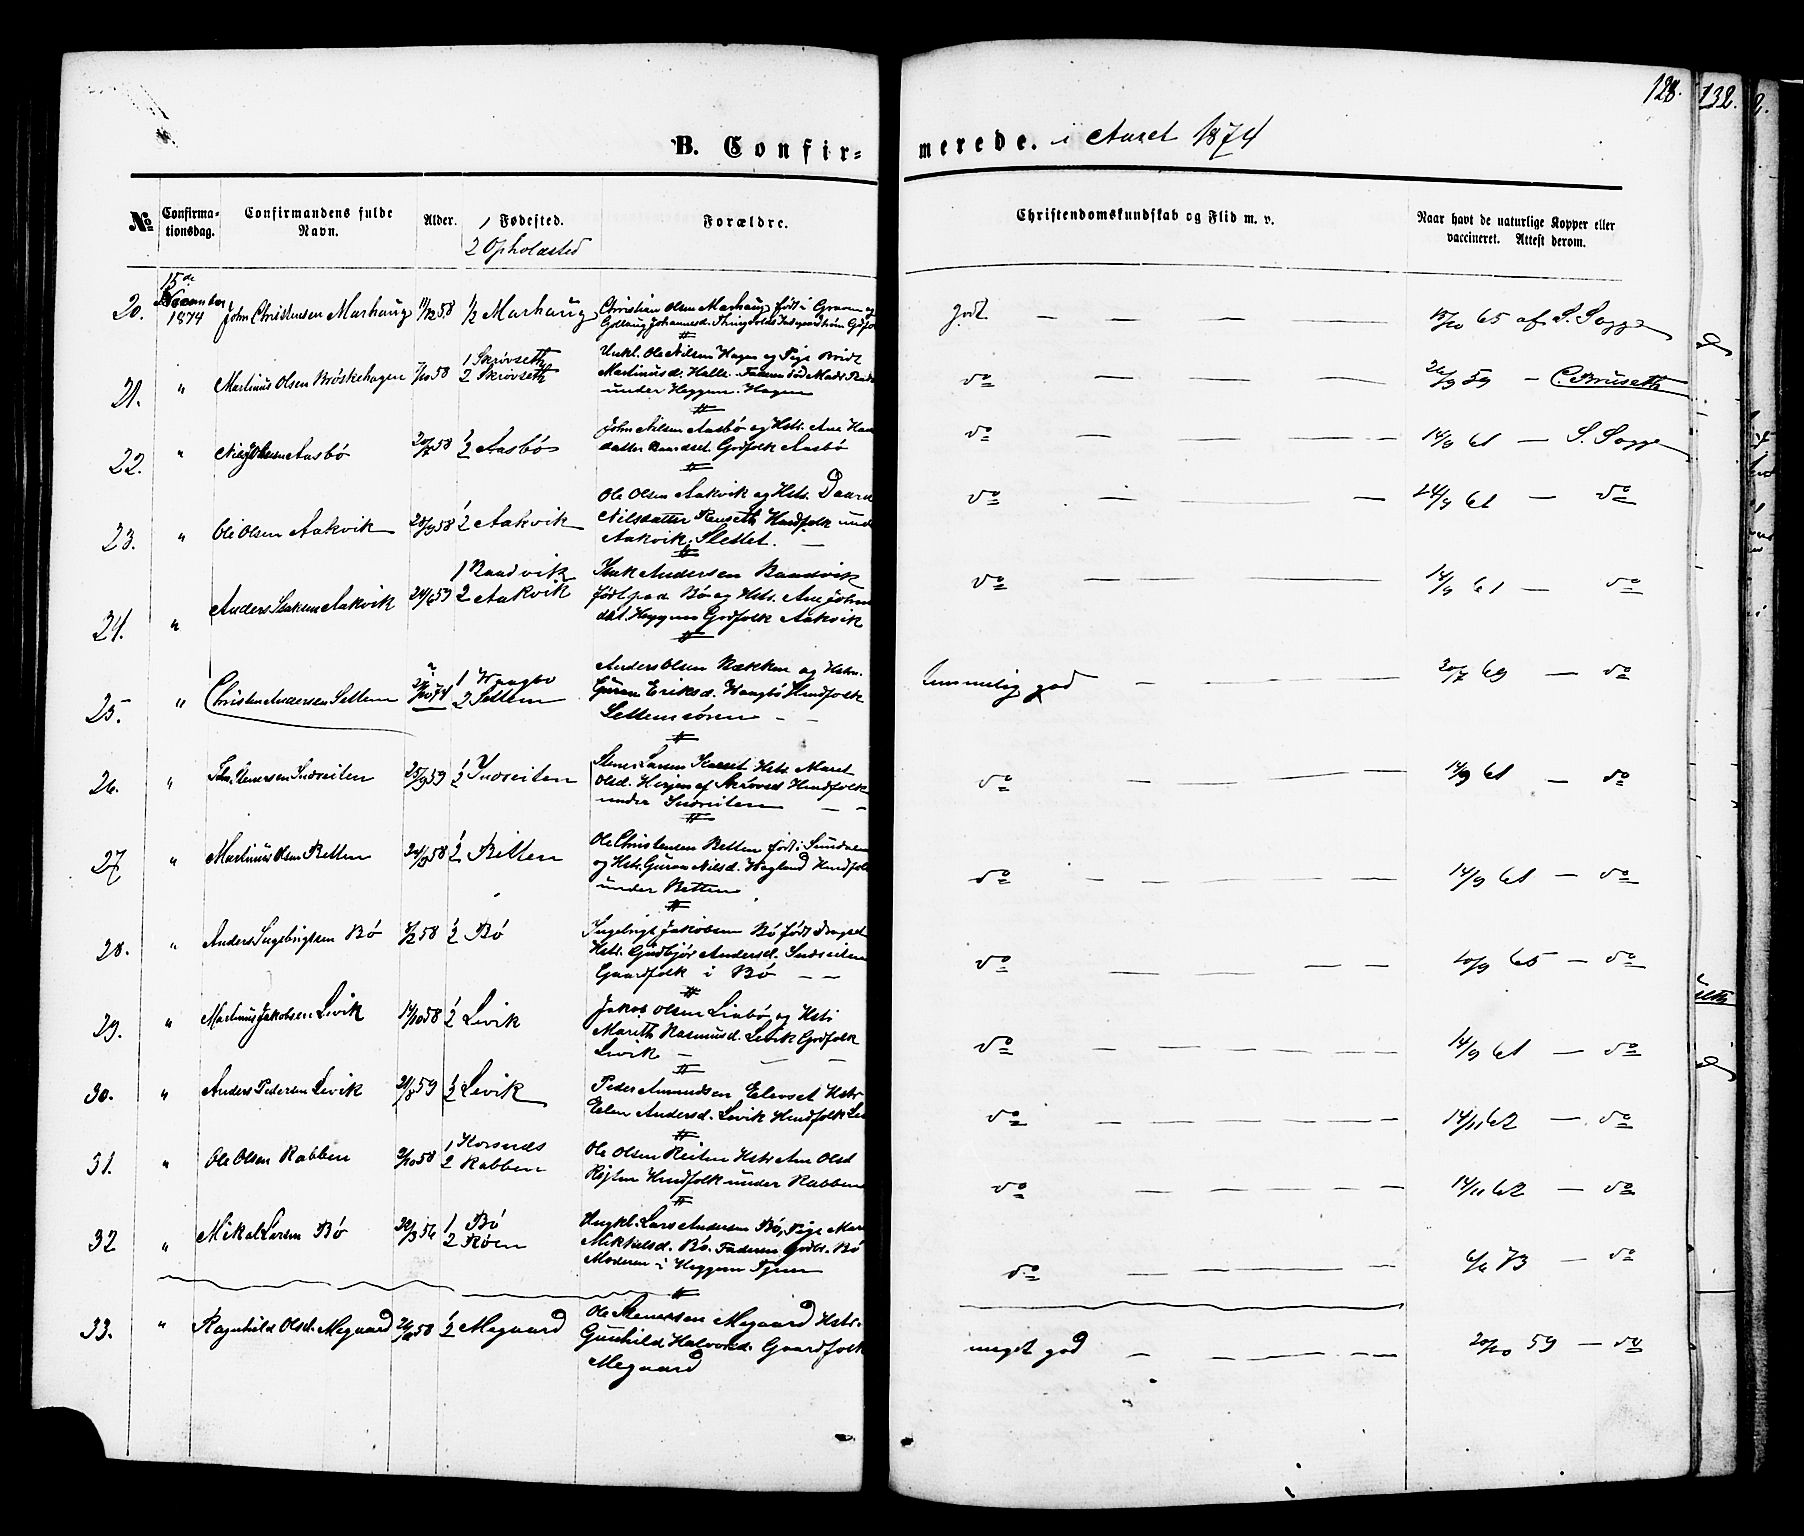 128.
132.
B. Confir-
merede. i Aaret 1874
No
Confirma-
tionsdag.
Confirmandens fulde
Navn.
Alder.
1 Fødested.
2 Opholdsted
Forældre.
Christendomskundskab og Flid m. v.
Naar havt de naturlige Kopper eller
vaccineret. Attest derom.
15de
November
1874
20. John Christensen Marhaug 11/12 58 1/2 Marhaug
Christian Olsen Marhaug født i Gravem og
godt — — — — 15/10 65 af S. Sogge
21. " Martinus Olsen Brøskehagen 7/10 58 1 Skrøvseth
2 Skrøvseth
Uækt. Ole Nilsen Hagen og Pige Brid
Martinusd. Halle. Faderen død
under Heggem. Hagen
do — — — 26/9 59 — C. Bruseth
22. " Nils Johnsen Aasbø 20/7 58 1/2 Aasbø
John Nilsen Aasbø og Hstr. Ane
datter Baardset Gdfolk Aasbø
do — — — 14/9 61 — S. Sogge
23. " Ole Olsen Aakvik 28/9 58 1/2 Aakvik
Ole Olsen Aakvik og Hstr.
Nilsdatter Renseth Husfolk und
Aakvik. Slettet. —
do — — — 14/9 61 — do
24. " Anders Isaksen Aakvik 24/6 59 1 Baadvik
2 Aakvik
Isak Andersen Baadvik
født paa Bø og Hstr. Ane John
dat. Heggem Gdfolk Aakvik
do — — — 14/9 61 — do
25. " Christen Andersen Settem 1 Waagbø
2 Settem
Anders Olsen Bækken og Hstr.
Guren Eriksd. Waagbø Husfolk
Settemsøren — —
temmelig god — — — 20/7 69 — do
26. " Steneresen Indreiten 25/9 59 1/2 Indreiten
Stener Larsen Hstr. Maret
Olsd. af Skrøvset Husfolk
under Indreiten — —
do — — — 14/9 61 — do
27 " Martinus Olsen Betten 24/9 58 1/2 Betten
Ole Christensen Betten født i Sundalen
og Hstr. Guron Nilsd. Hagland Husfolk
under Betten
do — — — 14/9 61 — do
28. " Anders Ingebrigtsen Bø 3/12 58 1/2 Bø
Ingebrigt Jakobsen Bø født
Hstr. Gudbjør Andersd. Indreiten
Gaardfolk i Bø — —
do — — — 20/9 65 — do
29. " Martinus Jakobsen Levik 14/10 58 1/2 Levik
Jakob Olsen Liabø og Hstr
Mareth Rasmusd. Levik Gdfolk
Levik — — —
do — — — 14/9 61 — do
30. " Anders Pedersen Levik 21/8 59 1/2 Levik
Peder Amundsen Elevset Hstr
Elen Andersd. Levik Husfolk Le
do — — — 14/11 62 — do
31. " Ole Olsen Rabben 2/10 58 1 Korsnes
2 Rabben
Ole Olsen Reiten Hstr Ane Olsd
Røjten Husfolk under Rabben
do — — — 14/11 62 — do
32 " Mikal Larsen Bø 30/3 56 1 Bø
2 Røen
Uægt. Lars Andersen Bø, Pige Mar
Mikkelsd. Bø. Faderen Gdbr. Bø
Moderen i Heggem Tjen
do — — — 6/6 73 — do
33. " Ragnhild Olsd. Megaard 26/8 58 1/2 Megaard
Ole Stenersen Megaard Hstr.
Gunhild Halvorsd. Gaardfolk
Megaard
meget god — — — 20/10 59 — do